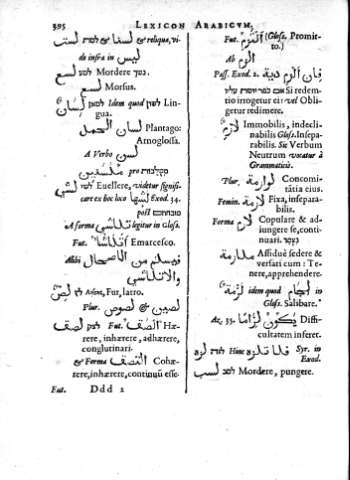 395 LEXICON ARABICVM.
لست & لسنا & reliqua, vi-
de infra in ليس
لسع Mordere דקר.
لسع Morsus.
لسان Idem quod לשון Lin-
gua.
لسان الحمل Plantago:
Arnoglossa.
A Verbo لسن
ملسنين pro
Euellere, videtur signifi-
care ex hoc loco Exod. 34.
post
A forma legitur in Gloss.
Fut. Emarcesco.
Alibi
والاتلاشي
لص Fur, latro.
Plur. لصوص & لصين
لصق Fut. الصق Hæ-
rere, inhærere, adhærere,
conglutinari.
Forma & التصق Cohæ-
rere, inhærere, continuū esse.
Fut. Ddd 2
Fut. التزم (Gloss. Promit-
to.)
Ab الزم
Pass. Exod. 2. فان الزم دية
Si redem-
tio irrogetur ei: vel Obli-
getur redimere.
لازم Immobilis, indecli-
nabilis Gloss. Insepa-
rabilis. Sic Verbum
Neutrum vocatur à
Grammaticis.
Plur. لوازمة Concomi-
tātia eius.
Femin. لازمة Fixa, insepara-
bilis.
Forma لازم Copulare & ad-
iungere se, conti-
nuari.
ملازمة Assiduè sedere &
versati cum: Te-
nere, apprehendere.
لزمة idem quod لجام in
Gloss. Salibare.
Ac. 33. يكون لزاما Diffi-
cultatem inferet.
لزه Hinc فلا تلزه Syr. in
Exod.
لسب Mordere, pungere.